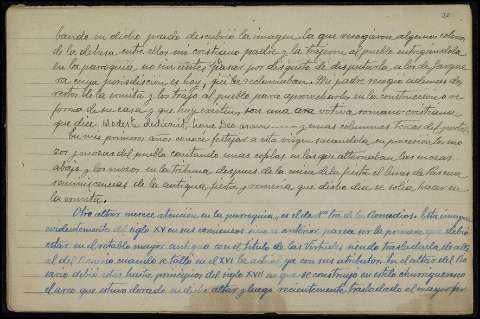 bando en dicho prado descubrió la imagen, la que recogieron algunos colonos
de la dehesa entre ellos mi cristiano padre y la trajeron al pueblo entregándola
en la parroquia, no sin antes pasar por disgusto de disputarla, a los de
cuya jurisdicción es hoy, que la reclamaban. Mi padre recogió además los
restos de la ermita y los trajo al pueblo para aprovecharlos en la construcción o re
forma de su casa y que hoy existen, son una ara votiva romano-cristiana
que dice dedicavit, hanc Deo aram y unas columnas toscas del portal.
En mis primeros años conocí festejar a esta virgen sacándola en procesión los mo
zos y mozas del pueblo cantando unas coplas en las que alternaban las mozas
abajo, y los mozos en la tribuna despues de la misa de la fiesta el lunes de Pascua
reminiscencias de la antigua fiesta y romería que dicho dia se solía hacer en
la ermita.
Otro altar merece atención en la parroquia, es el de Nª Sra de los Remedios. Esta imagen
evidentemente del siglo XV en sus comienzos sino es anterior, parece ser la primera que debió
estar en el retablo mayor antiguo con el título de las Virtudes siendo trasladada de allí
al del Rosario cuando se talló en el XVI la actual ya con sus atributos. En el altar del Ro
sario debió estar hasta principios del siglo XVII en que se construyó en estilo churrigueresco
el arco que estuvo dorado en dicho altar y luego recientemente trasladado al mayor por